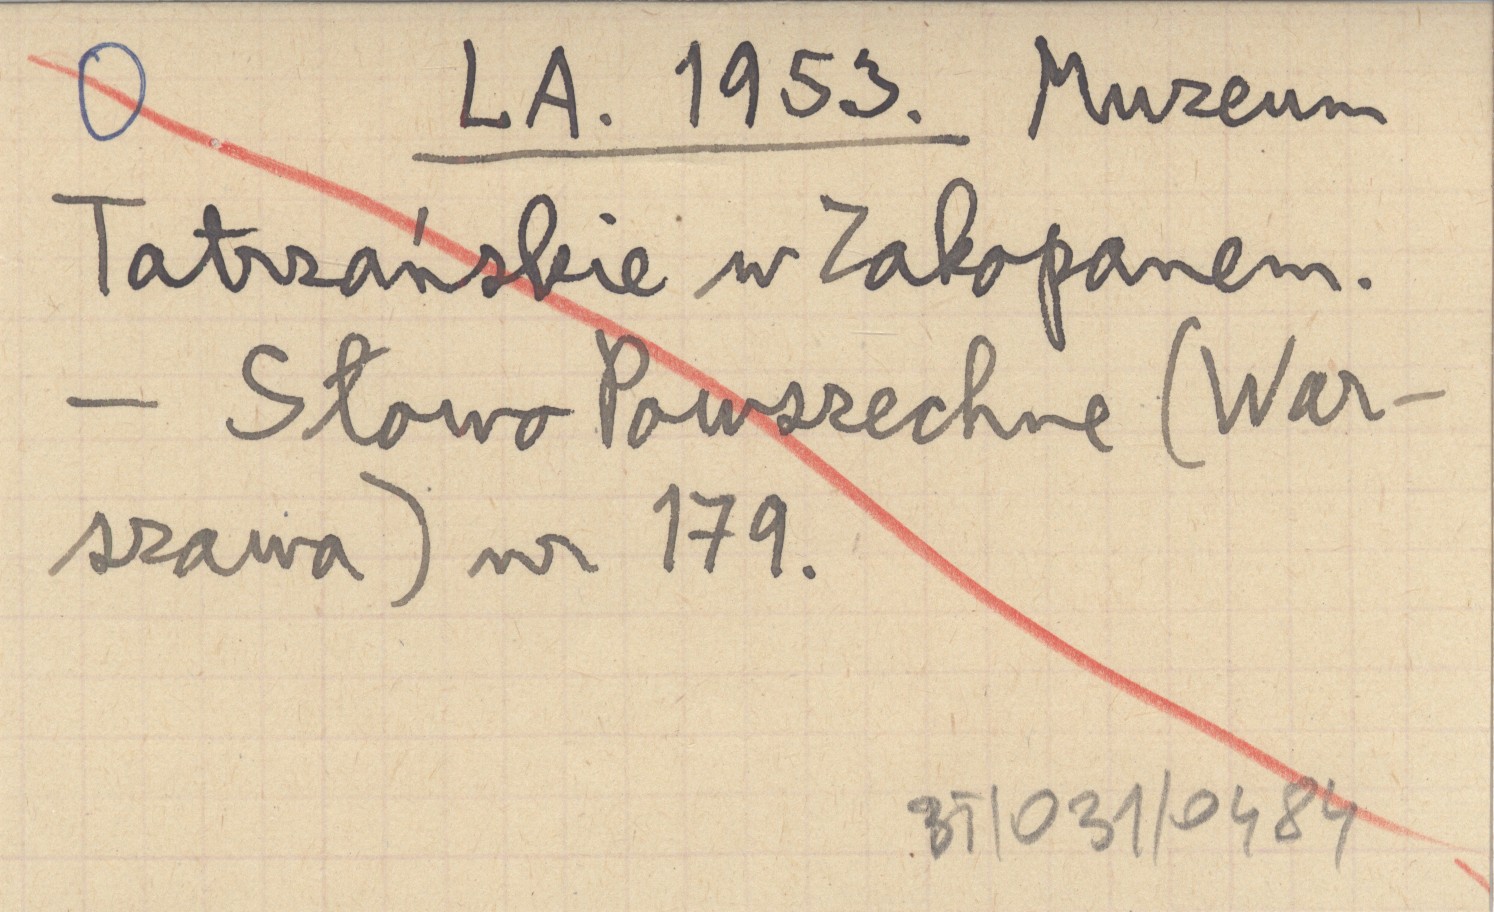 O LA. 1953. Muzeum
Tatrzańskie w Zakopanem.
— Słowo Powszechne (War-
szawa) nr 179.
BT/031/0484